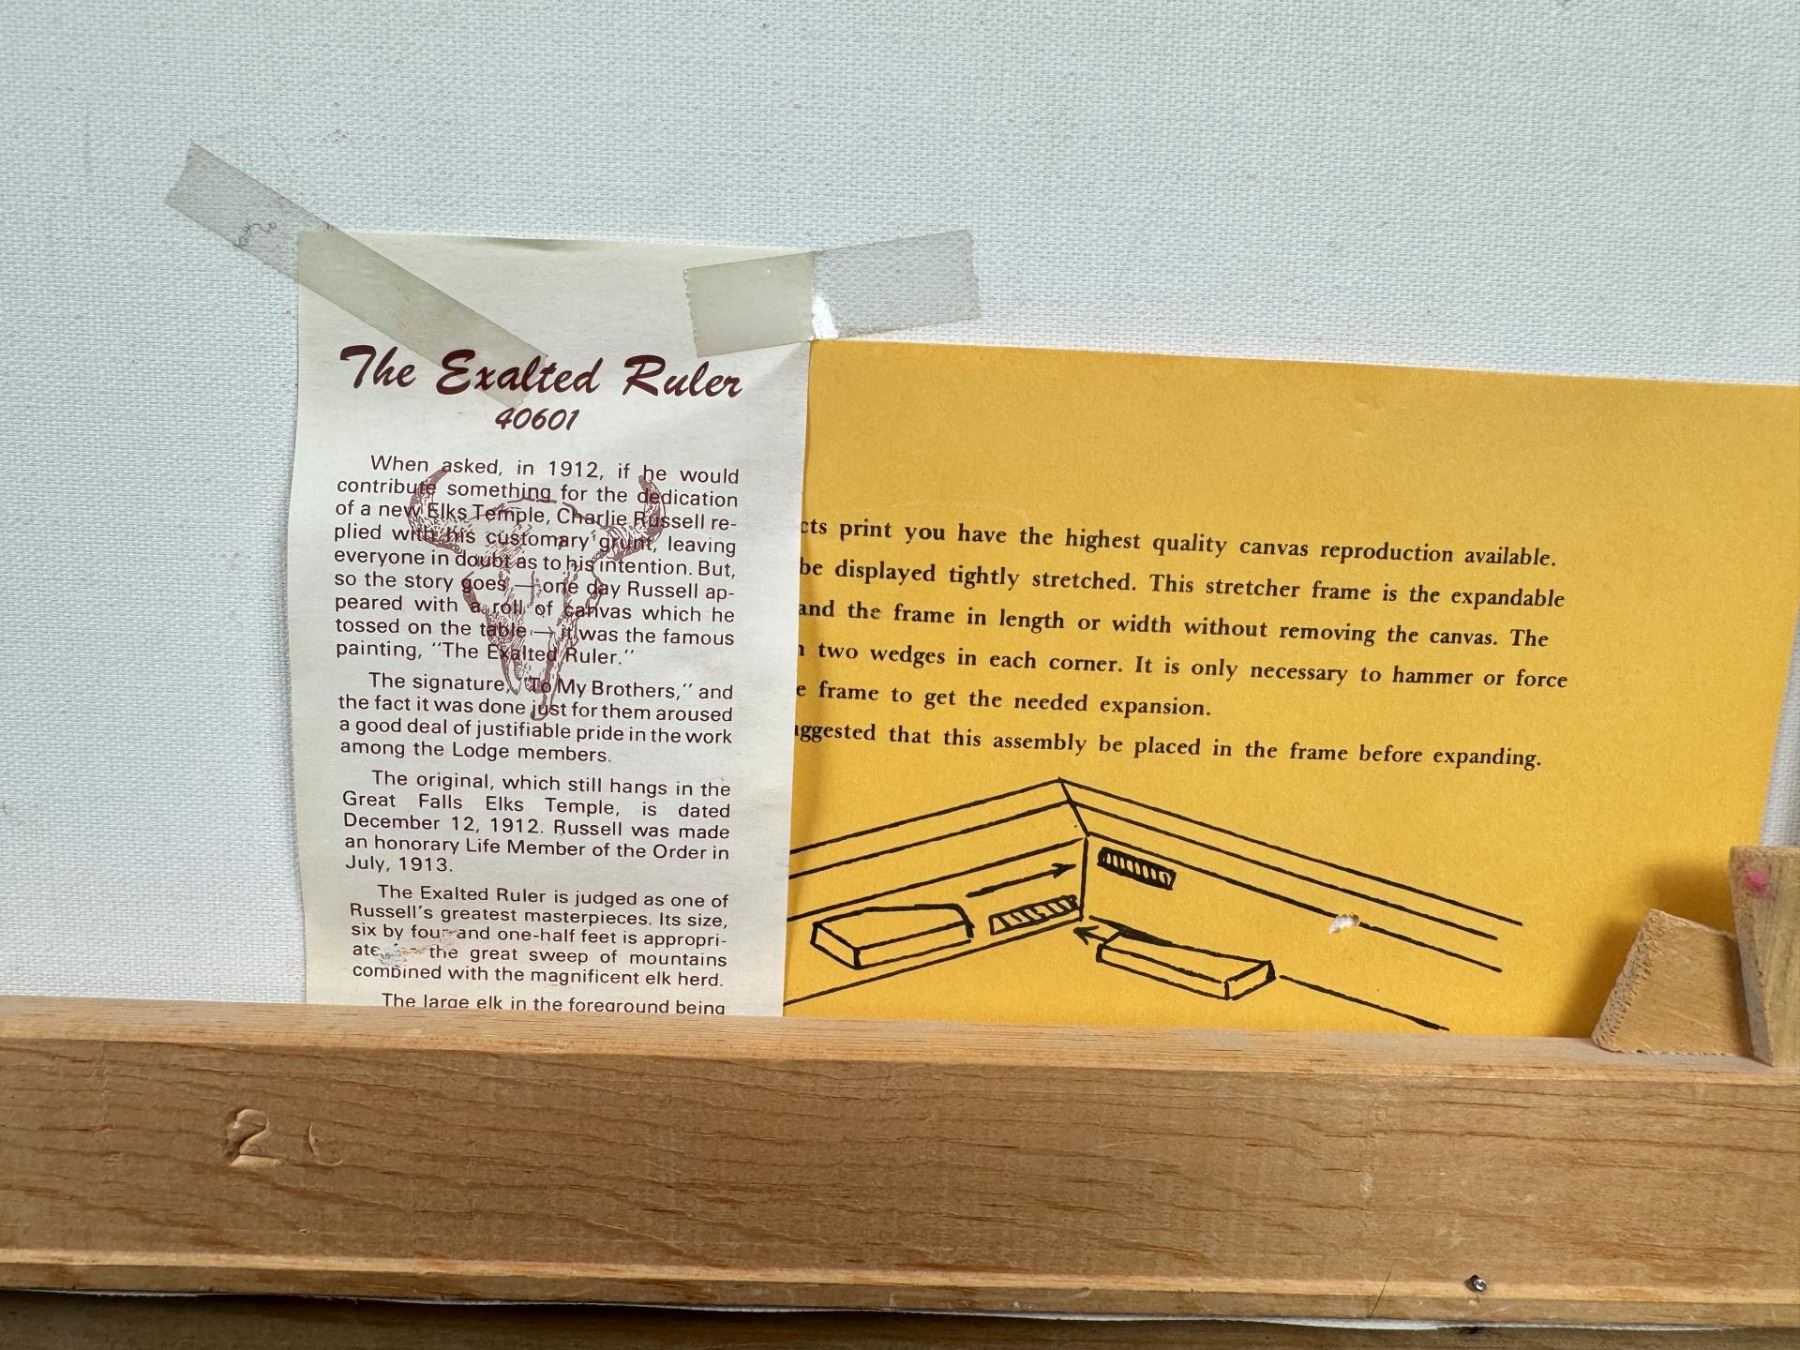 The Exalted Ruler
40601
When asked, in 1912, if he would
contribute something for the dedication
of a new Elks Temple, Charlie Russell re-
plied with his customary grunt, leaving
everyone in doubt as to his intention. But,
so the story goes — one day Russell ap-
peared with a roll of canvas which he
tossed on the table — it was the famous
painting, "The Exalted Ruler."
The signature, "To My Brothers," and
the fact it was done just for them aroused
a good deal of justifiable pride in the work
among the Lodge members.
The original, which still hangs in the
Great Falls Elks Temple, is dated
December 12, 1912. Russell was made
an honorary Life Member of the Order in
July, 1913.
The Exalted Ruler is judged as one of
Russell's greatest masterpieces. Its size,
six by four and one-half feet is appropri-
ate the great sweep of mountains
combined with the magnificent elk herd.
The large elk in the foreground being
cts print you have the highest quality canvas reproduction available.
be displayed tightly stretched. This stretcher frame is the expandable
and the frame in length or width without removing the canvas. The
two wedges in each corner. It is only necessary to hammer or force
e frame to get the needed expansion.
ggested that this assembly be placed in the frame before expanding.
2